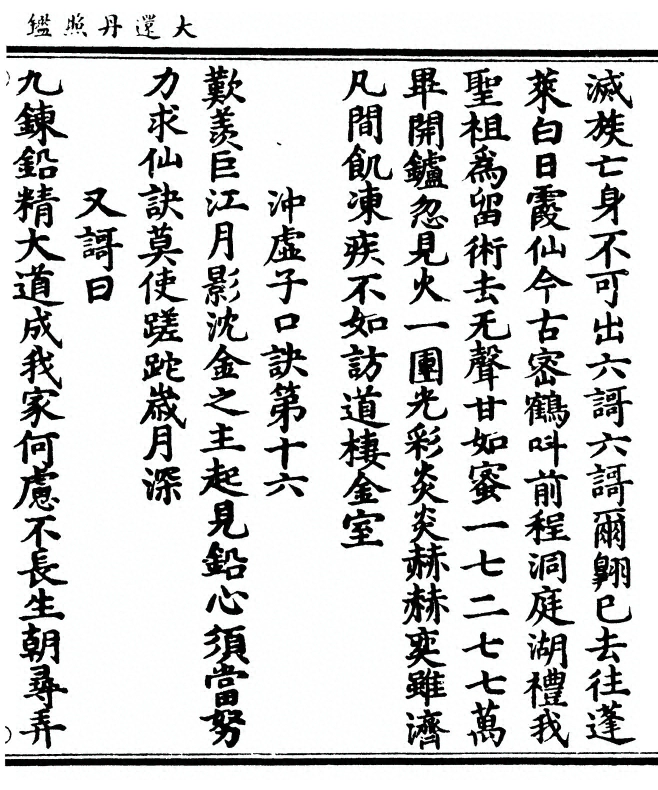 大還丹照鑑
滅族亡身不可出六謌六謌爾翺巳去往蓬
萊白日霞仙今古密鶴呌前程洞庭湖禮我
聖祖為留術去无聲甘如蜜一七二七七萬
畢開鑪忽見火一團光彩炎炎赫赫奕雖濟
凡間飢凍疾不如訪道棲金室
沖虛子口訣第十六
歎羨巨江月影沈金之主起見鉛心須當努
力求仙訣莫使蹉跎嵗月深
又謌曰
九鍊鉛精大道成我家何慮不長生朝尋弄